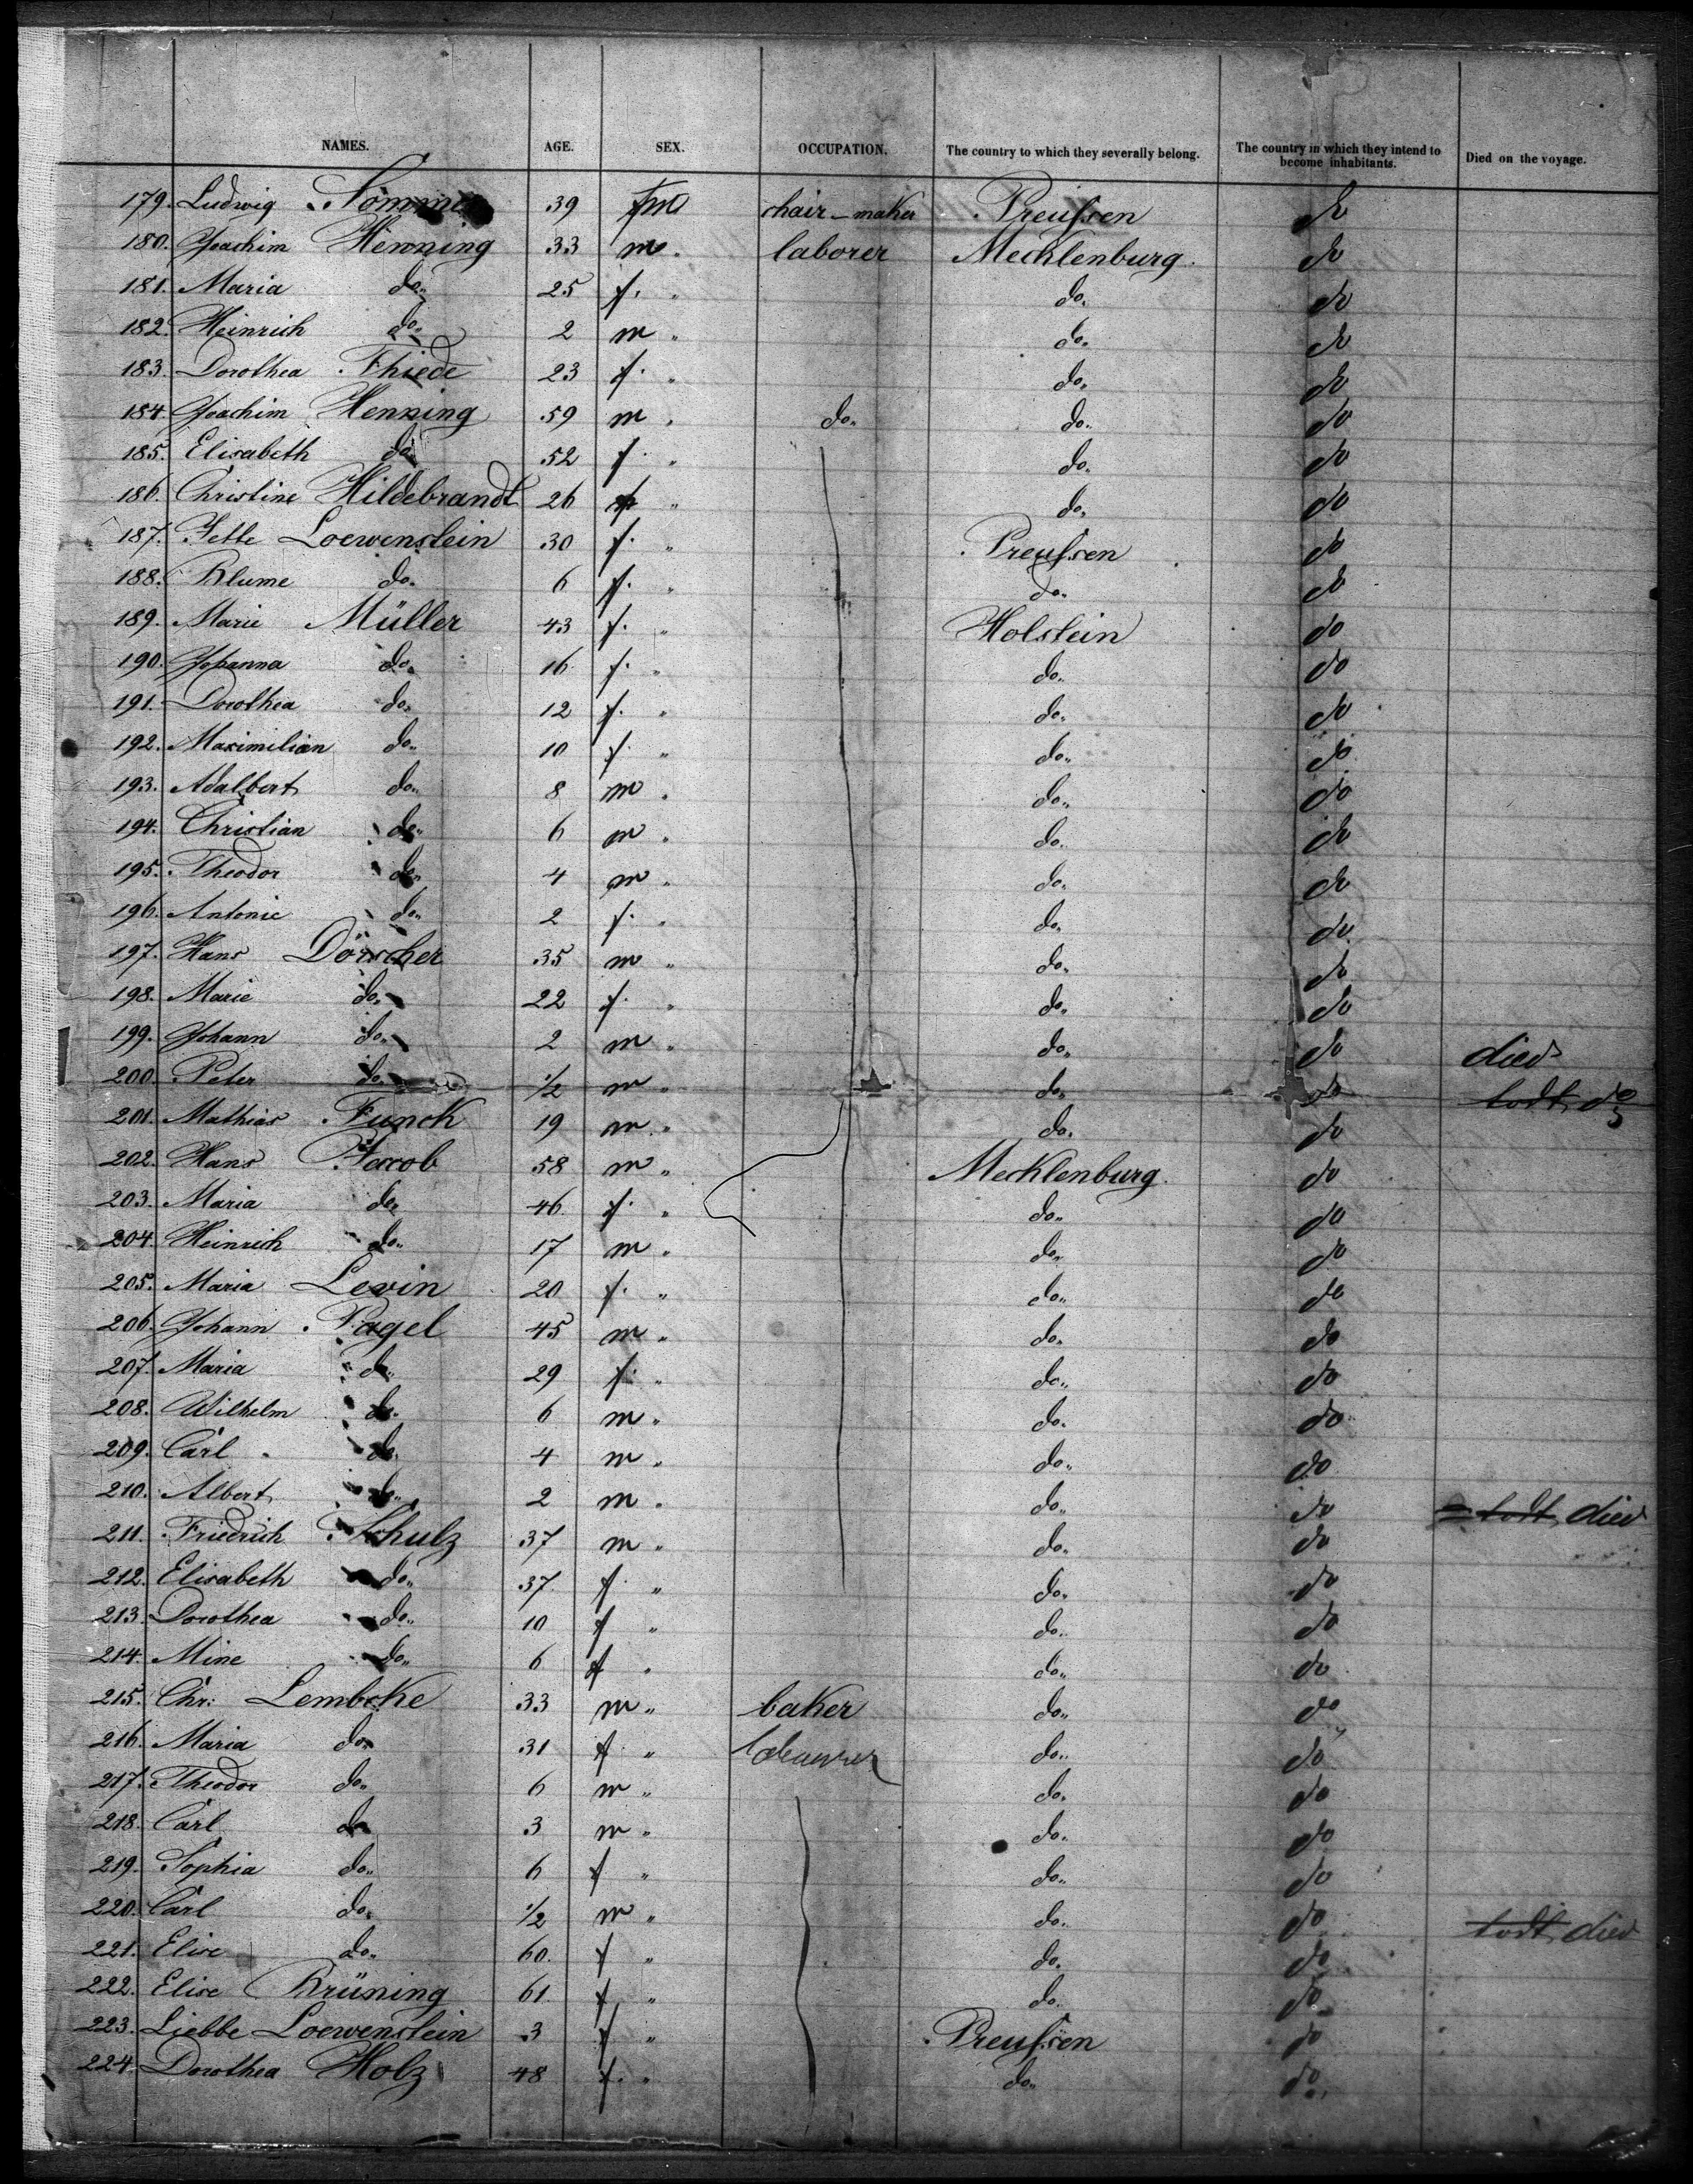 NAMES. AGE. SEX. OCCUPATION. The country to which they severally belong. The country in which they intend to become inhabitants. Died on the voyage.
179. Ludwig Sommer 39 m chair-maker Preußen do
180. Joachim Henning 33 m. laborer Mecklenburg. do
181. Maria do. 25 f. " do. do
182. Heinrich do. 2 m " do. do
183. Dorothea Thiede 23 f. " do. do
184. Joachim Henning 59 m " do. do. do
185. Elisabeth do. 52 f. " do. do
186. Christine Hildebrandt 26 f " do. do
187. Jette Loewenstein 30 f. " Preußen do
188. Blume do. 6 f. " do. do
189. Marie Müller 43 f. " Holstein do
190. Johanna do. 16 f. " do. do
191. Dorothea do. 12 f. " do. do
192. Maximilian do. 10 f. " do. do
193. Adalbert do. 8 m " do. do
194. Christian do. 6 m " do. do
195. Theodor do. 4 m " do. do
196. Antonie do. 2 f. " do. do
197. Hans Dörscher 35 m " do. do
198. Marie do. 22 f. " do. do
199. Johann do. 2 m " do. do died
200. Peter do. 1/2 m " do. do todt do
201. Mathias Funck 19 m " do. do
202. Hans Jacob 58 m " Mecklenburg. do
203. Maria do. 46 f. " do. do
204. Heinrich do. 17 m " do. do
205. Maria Levin 20 f. " do. do
206. Johann Pagel 45 m " do. do
207. Maria do. 29 f. " do. do
208. Wilhelm do. 6 m " do. do
209. Carl do. 4 m " do. do
210. Albert do. 2 m " do. do todt died
211. Friedrich Schulz 37 m " do. do
212. Elisabeth do. 37 f. " do. do
213. Dorothea do. 10 f " do. do
214. Mine do. 6 f " do. do
215. Chr: Lembcke 33 m " baker do. do
216. Maria do. 31 f " do. do
217. Theodor do. 6 m " do. do
218. Carl do 3 m " do. do
219. Sophia do. 6 f " do. do
220. Carl do. 1/2 m " do. do todt died
221. Elise do. 60. f " do. do
222. Elise Brüning 61 f " do. do
223. Liebbe Loewenstein 3 f " Preußen do
224. Dorothea Holz 48 f. " do. do.